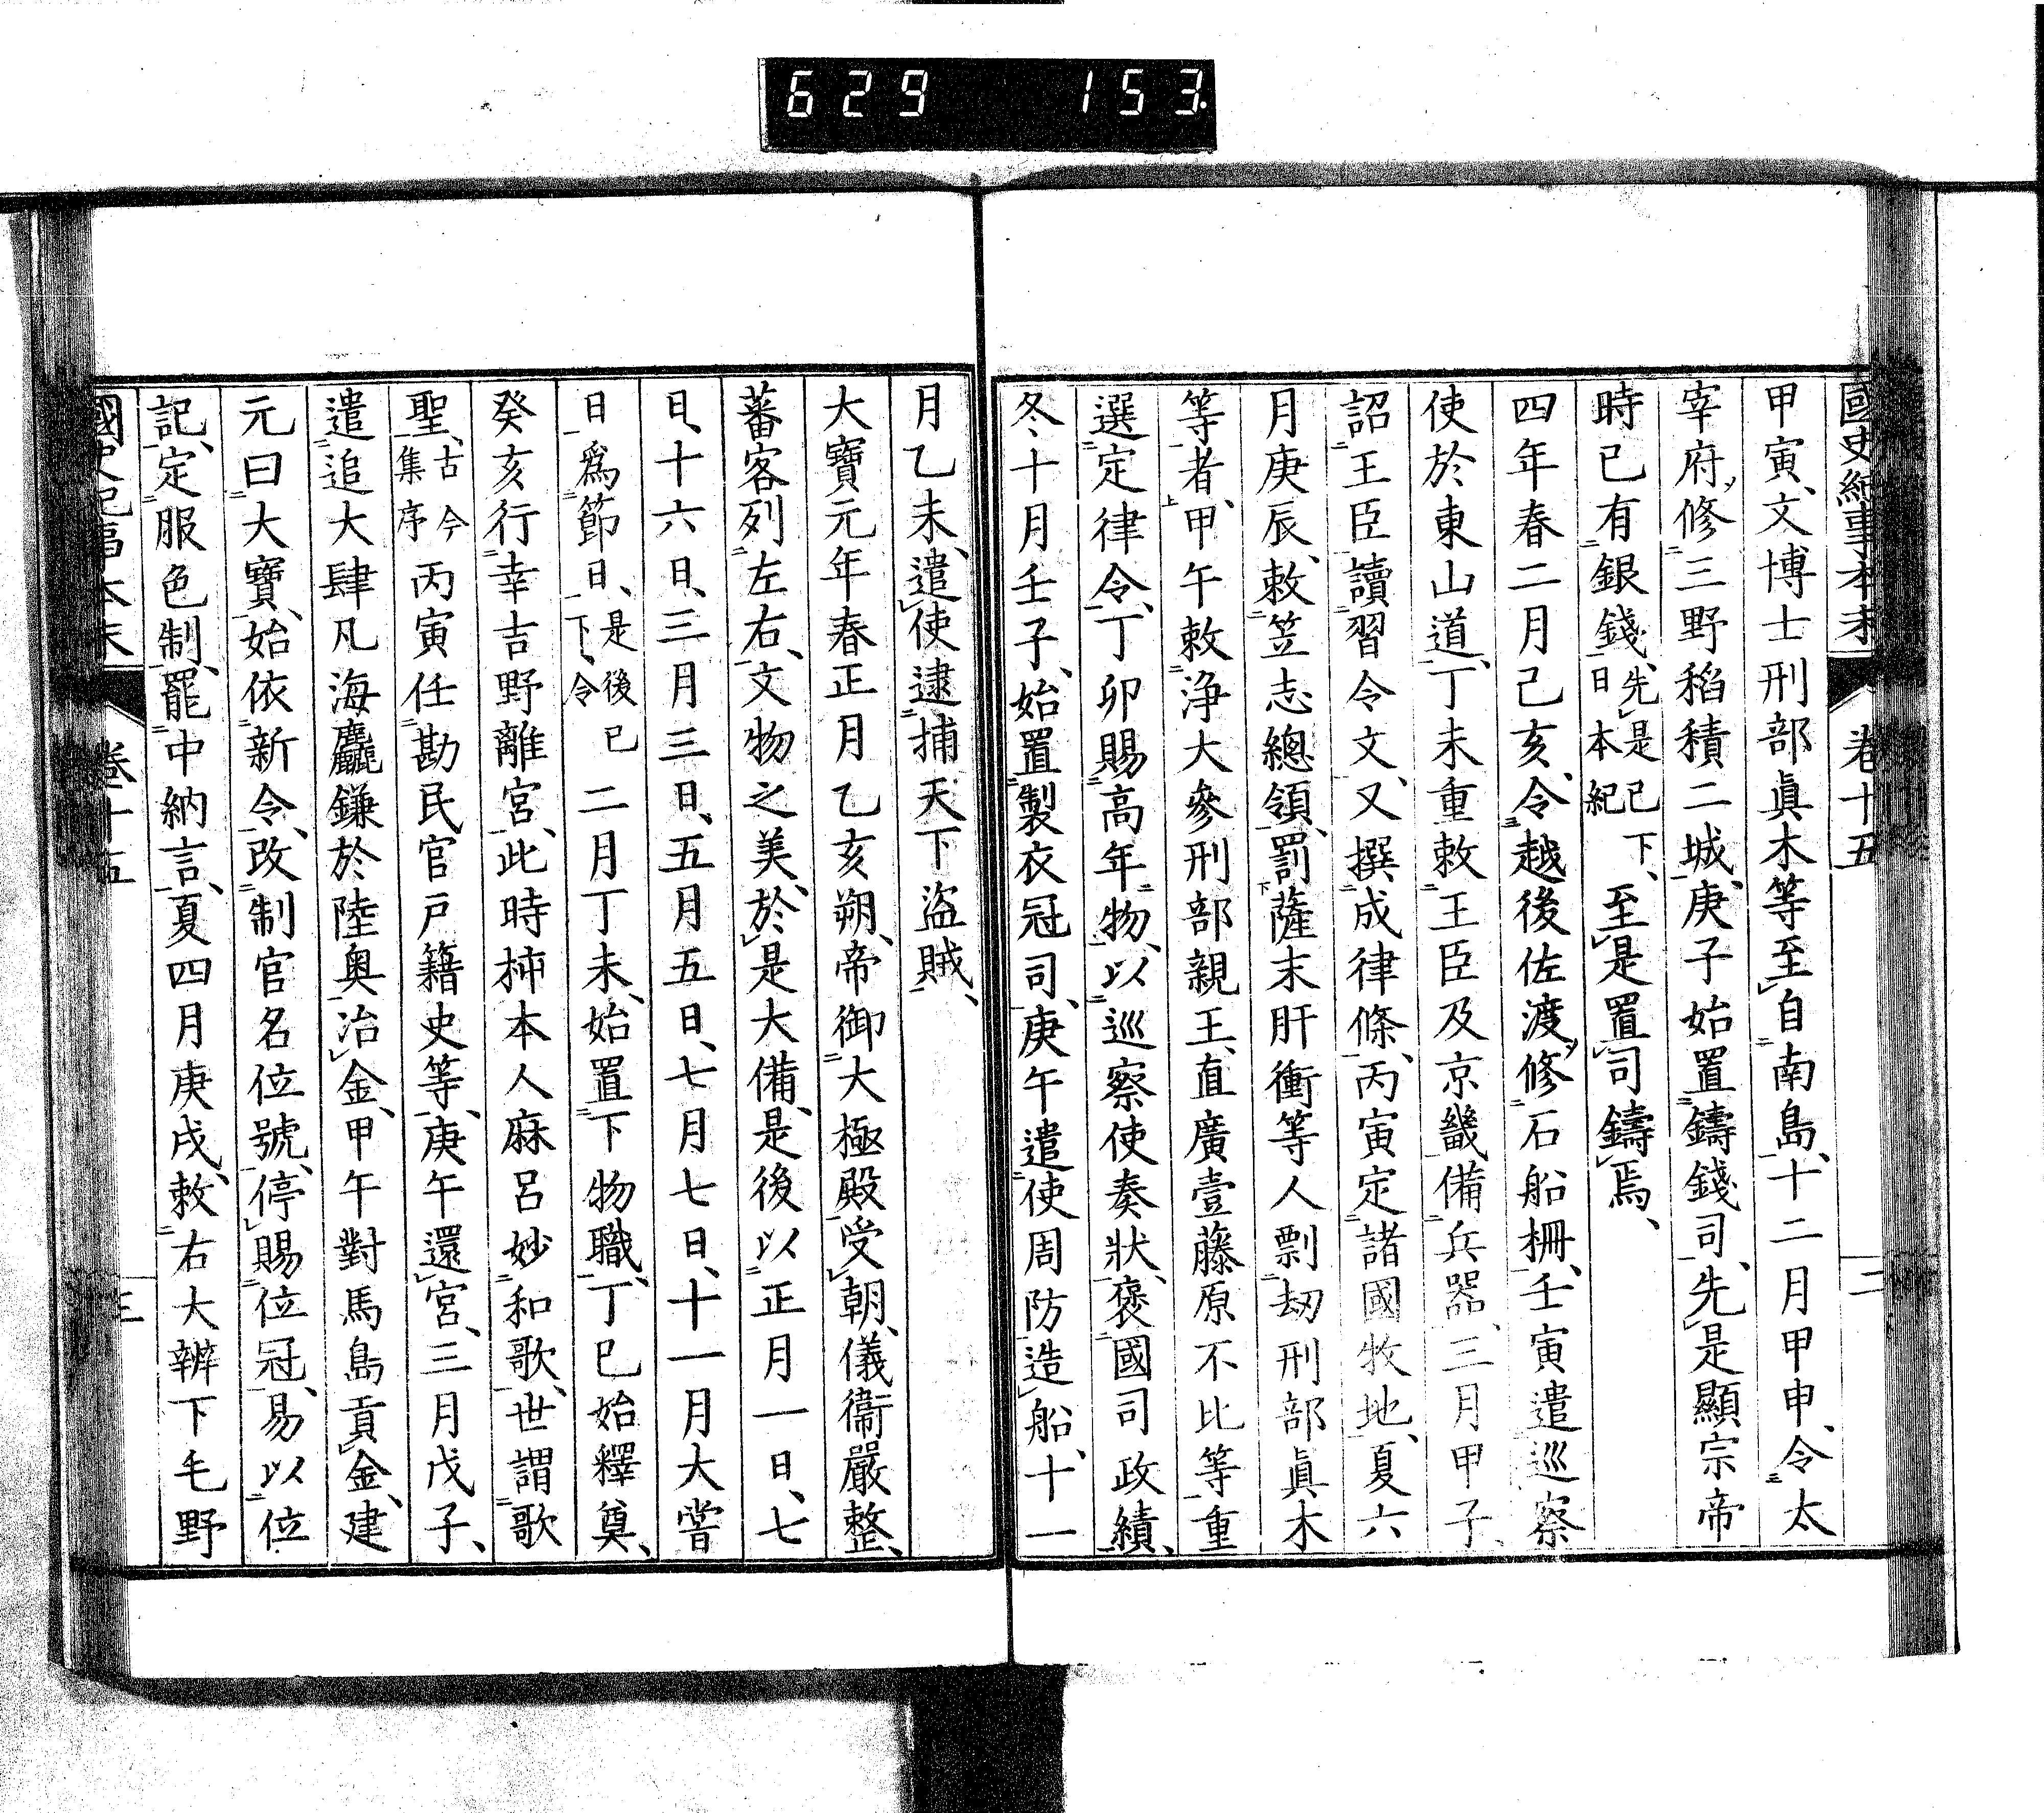 629 153
國史紀事本末 卷十五 二
甲寅、文博士刑部眞木等至自南島、十二月甲申、令太
宰府修三野稻積二城、庚子始置鑄錢司、先是顯宗帝
時已有銀錢、先是已下、日本紀至是置司鑄焉、
四年春二月己亥、令越後佐渡修石船柵、壬寅遣巡察
使於東山道、丁未重敕王臣及京畿備兵器、三月甲子、
詔王臣讀習令文、又撰成律條、丙寅定諸國牧地、夏六
月庚辰、敕笠志總領、罰薩末肝衝等人剽劫刑部眞木
等者、甲午敕淨大參刑部親王、直廣壹藤原不比等重
選定律令、丁卯賜高年物、以巡察使奏狀、襃國司政績、
冬十月壬子、始置製衣冠司、庚午遣使周防造船、十一
月乙未、遣使逮捕天下盜賊、
大寶元年春正月乙亥朔、帝御大極殿受朝、儀衞嚴整、
蕃客列左右、文物之美、於是大備、是後以正月一日、七
日、十六日、三月三日、五月五日、七月七日、十一月大嘗
日爲節日、是後已下、令二月丁未、始置下物職、丁巳始釋奠、
癸亥行幸吉野離宮、此時柿本人麻呂妙和歌、世謂歌
聖、古今集序丙寅任勘民官戸籍史等、庚午還宮、三月戊子、
遣追大肆凡海麤鎌於陸奧冶金、甲午對馬島貢金、建
元曰大寶、始依新令、改制官名位號、停賜位冠、易以位
記、定服色制、罷中納言、夏四月庚戌、敕右大辨下毛野
國史紀事本末 卷十五 三